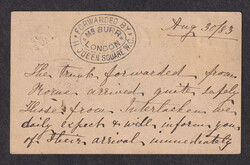 Aug 30/83
FORWARDED BY
MR BURR
LONDON
11 QUEEN SQUARE W.C.
The trunk forwarded from
Rome arrived quite safely
Those from Interlaken we
daily expect & will inform you
of their arrival immediately